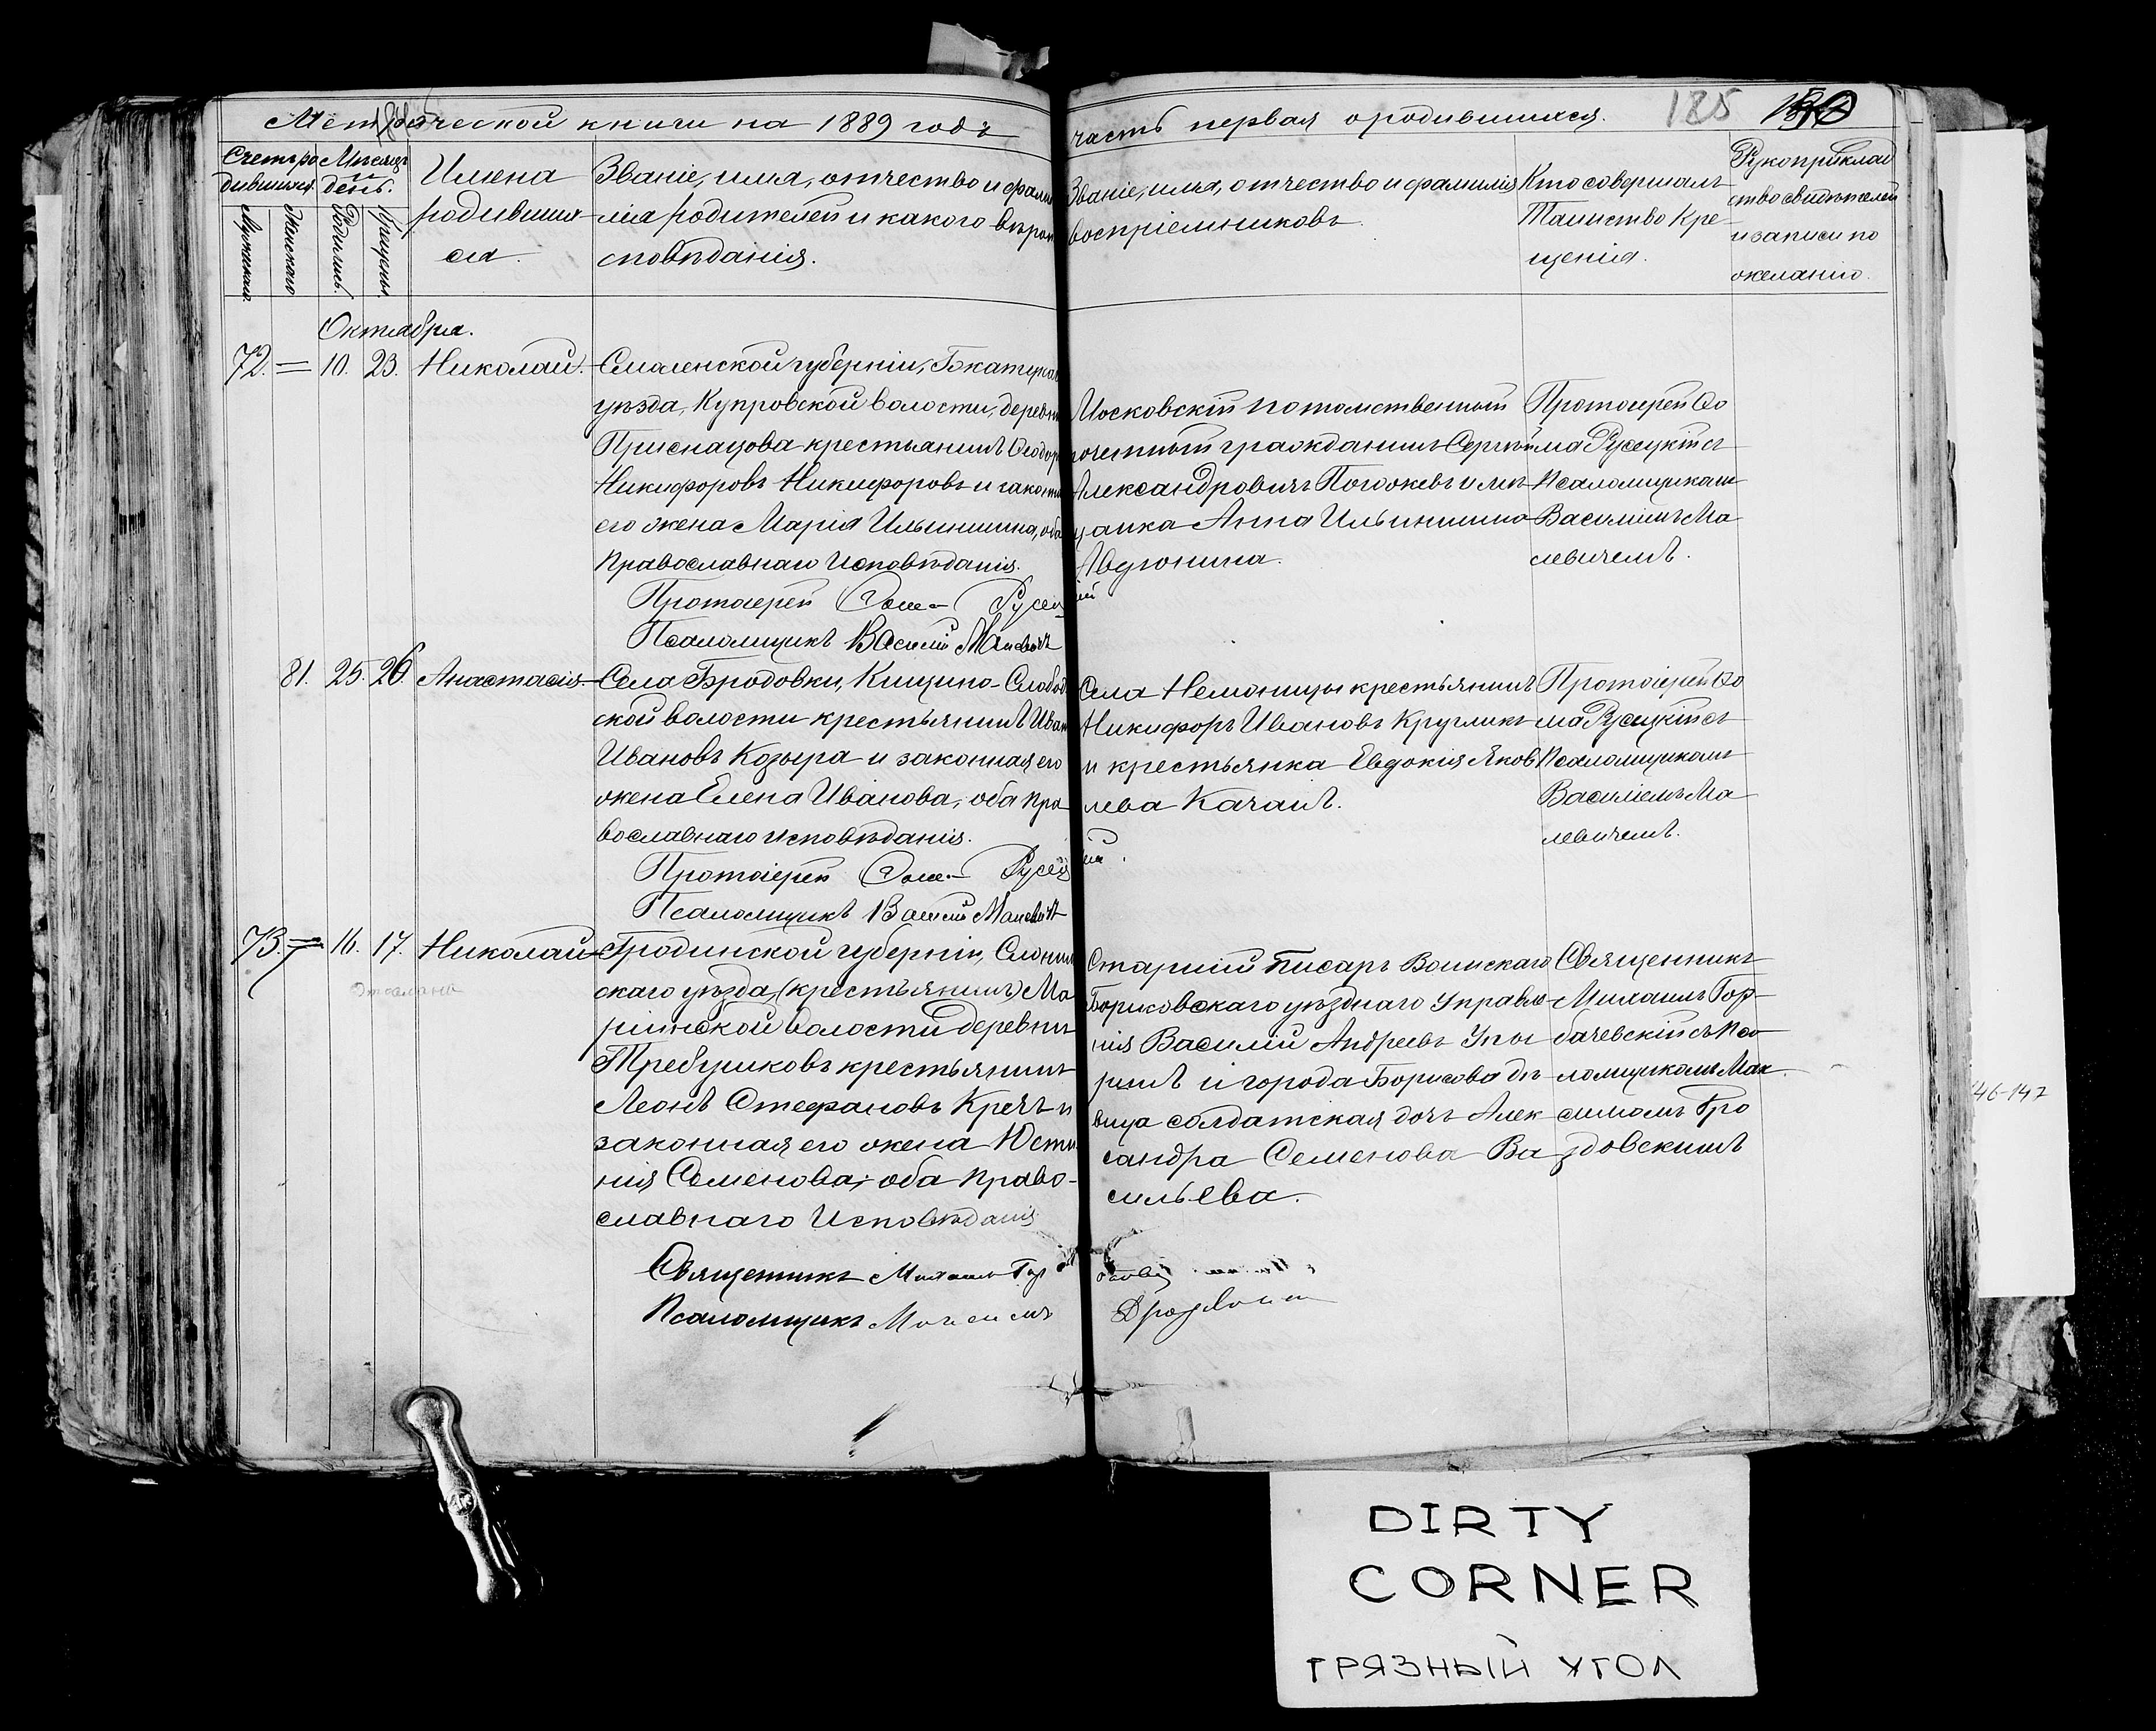 Метрической книги на 1889 годъ
часть первая о родившихся. 185
Счетъ ро
дившихся.
Мужескаго.
Женскаго
Мѣсяцъ
и
день.
Родились.
Крещены
Имена
родивших
ся.
Званіе, имя, отчество и фами
лія родителей и какого вѣрои
сповѣданія.
Званіе, имя, отчество и фамилія
воспріемниковъ.
Кто совершалъ
Таинство Кре
щенія.
Рукоприклад
ство свидѣтелей
и записи по
желанію.
Октября.
72. = 10. 23. Николай.
Смоленской губерніи,
уѣзда, Купровской волости, деревни
крестьянинъ Ѳеодоръ
Никифоровъ Никифоровъ и законная
его жена Марія Ильинишна, оба
Православнаго Исповѣданія.
Протоіерей Ѳома Русец
Псаломщикъ Василій Малевичъ
Московскій потомственный
почетный гражданинъ Сергѣй
Александровичъ Погожевъ и мѣ
щанка Анна Ильинишна
Авдюнина.
кій
Протоіерей Ѳо
ма Русецкій съ
Псаломщикомъ
Василіемъ Ма
левичемъ.
81. 25. 26. Анастасія.
Села Бродовки, Кищино-Слобод
ской волости крестьянинъ Иванъ
Ивановъ Козыра и законная его
жена Елена Иванова, оба пра
вославнаго исповѣданія.
Протоіерей Ѳома Русец
Псаломщикъ Василій Малевичъ
Села Немоницы крестьянинъ
Никифоръ Ивановъ Кругликъ
и крестьянка Евдокія Яков
лева Качанъ.
кій.
Протоіерей Ѳо
ма Русецкій съ
Псаломщикомъ
Василіемъ Ма
левичемъ.
73. = 16. 17. Николай
Гродненской губерніи, Слоним
скаго уѣзда, (крестьянинъ) Ма
ріинской волости деревни
Требушковъ крестьянинъ
Леонъ Стефановъ Кречъ и
законная его жена Юсти
нія Семенова; оба право-
славнаго Исповѣданія
Священникъ Михаилъ Гор
Псаломщикъ Максимъ
Старшій писарь Воинскаго
Борисовскаго уѣзднаго Управле
нія Василій Андреевъ
и города Борисова дѣ
вица солдатская дочь Алек
сандра Семенова Ва
сильева.
Священникъ
Михаилъ Гор-
бачевскій съ пса
ломщикомъ Мак
симомъ Гро
здовскимъ
46-147
DIRTY
CORNER
ГРЯЗНЫЙ УГОЛ